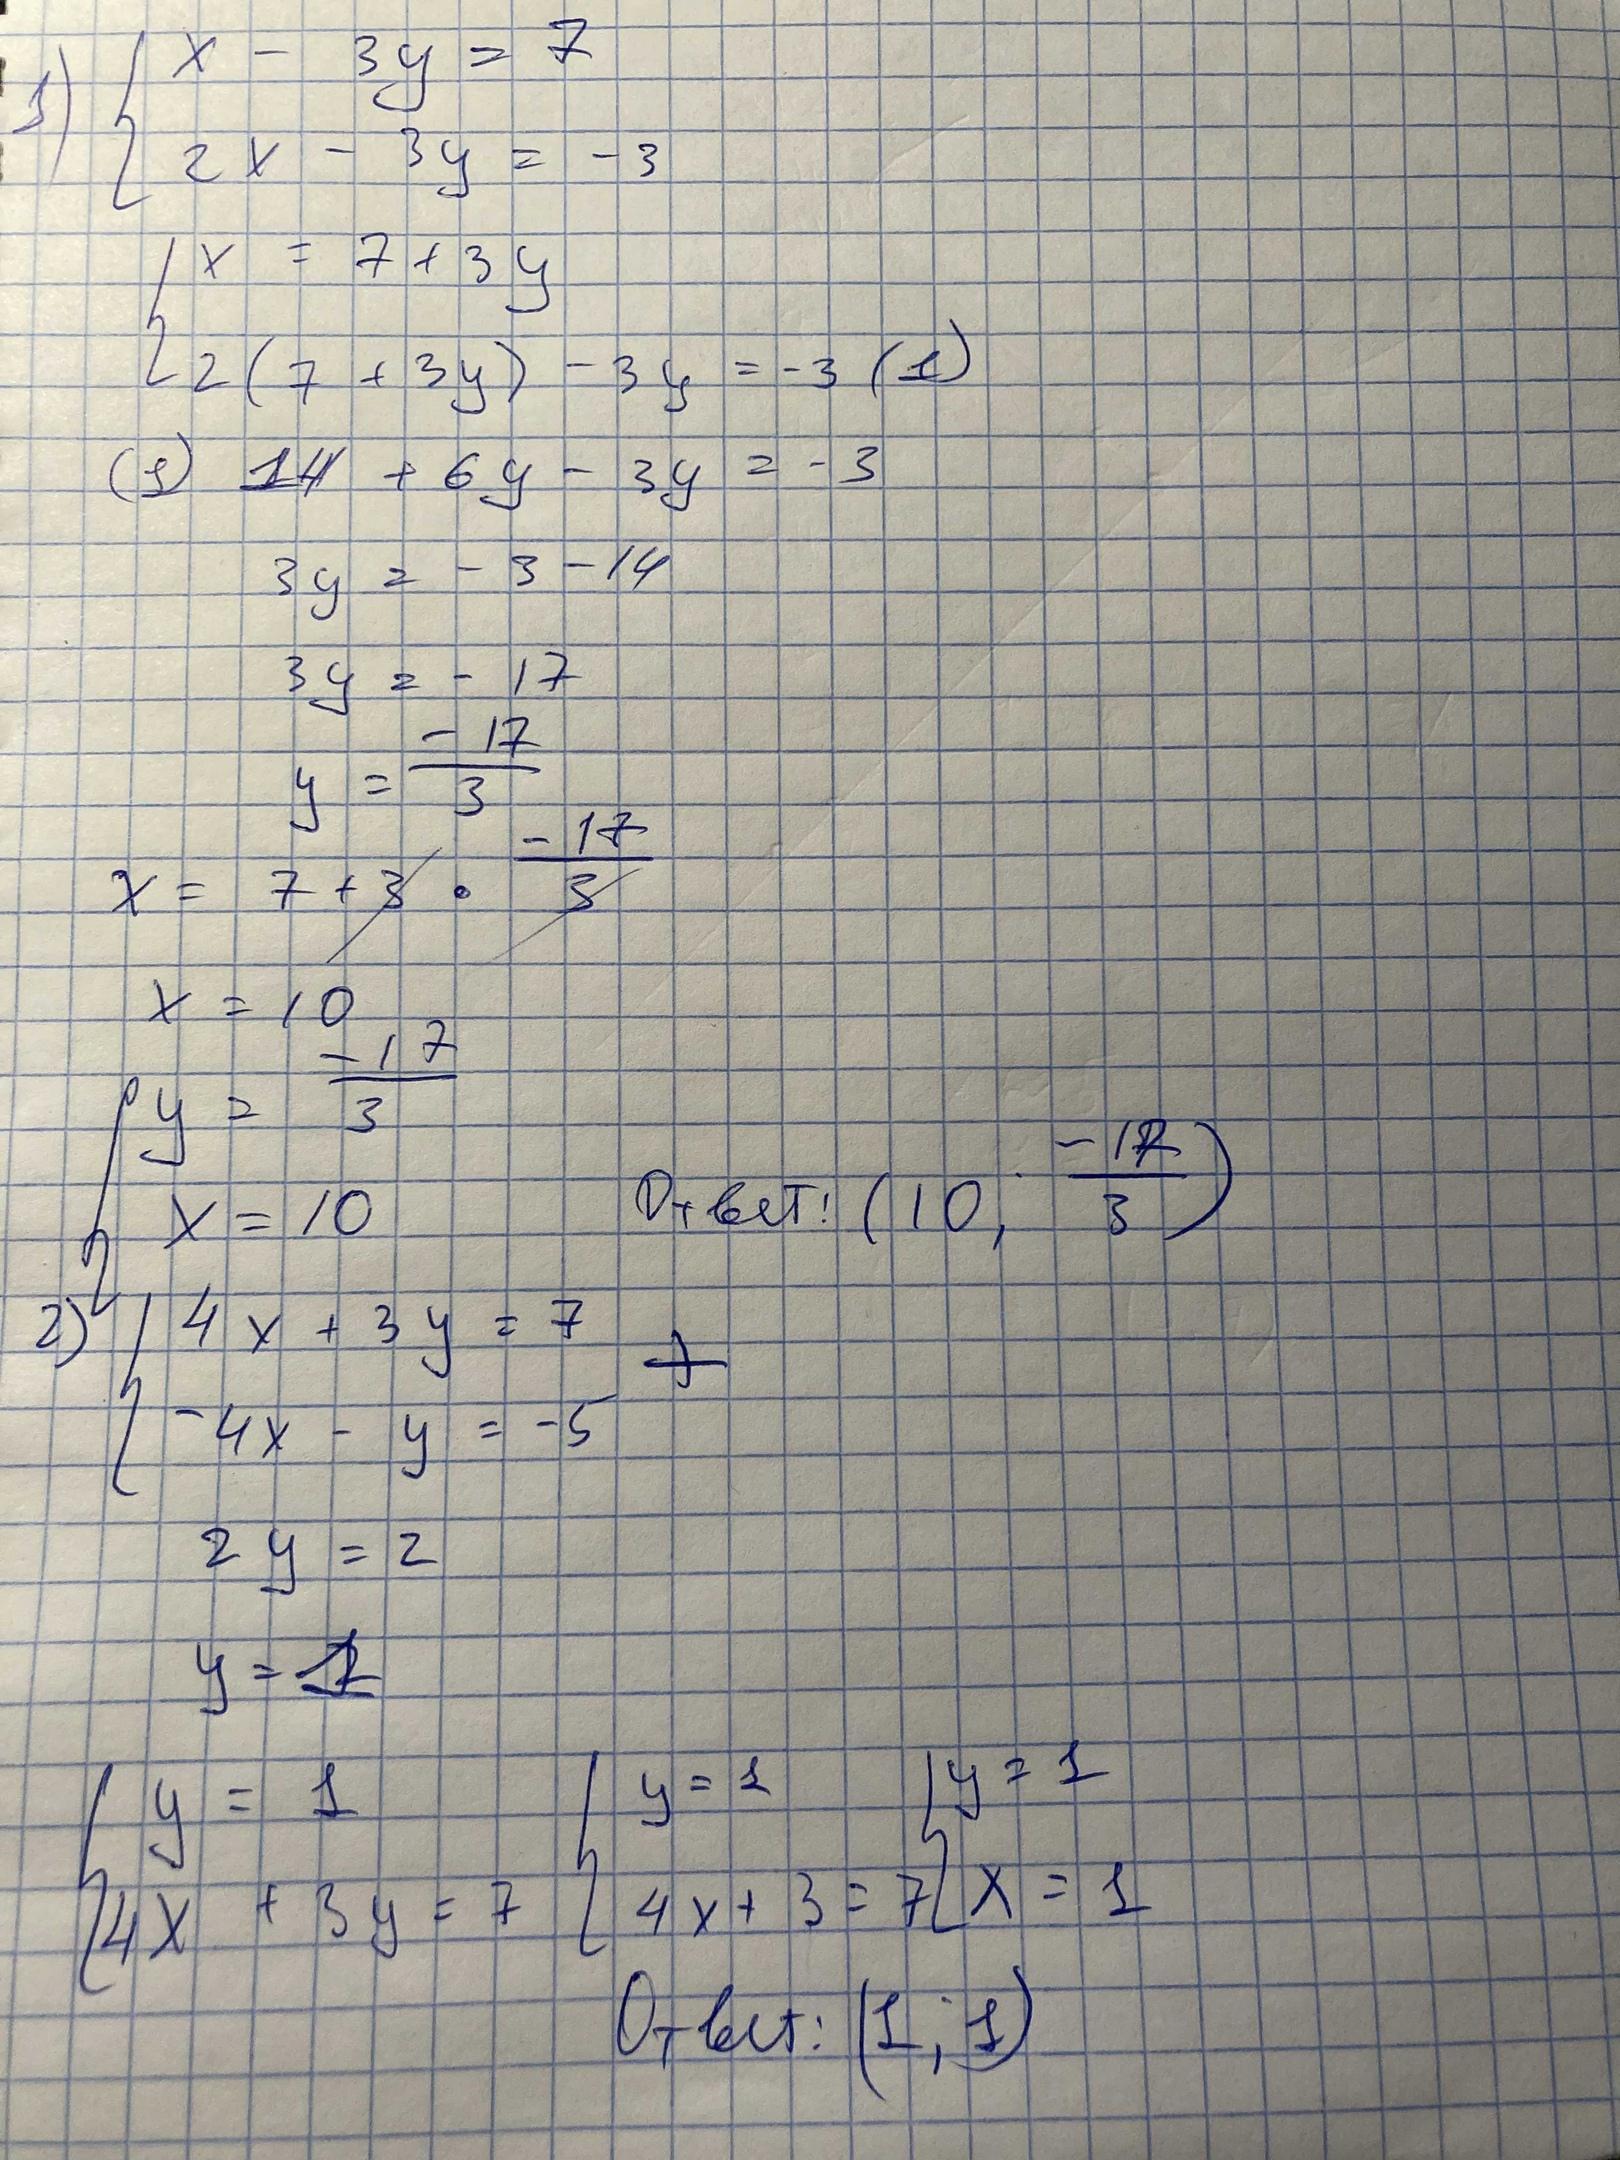 1) { x - 3y = 7
2x - 3y = -3
{ x = 7 + 3y
2(7 + 3y) - 3y = -3 (1)
(1) 14 + 6y - 3y = -3
3y = -3 - 14
3y = -17
y = -17/3
x = 7 + 3 · -17/3
x = 10
{ y = -17/3
x = 10 Ответ: (10; -17/3)
2) { 4x + 3y = 7 +
-4x - y = -5
2y = 2
y = 1
{ y = 1 { y = 1 { y = 1
4x + 3y = 7 4x + 3 = 7 x = 1
Ответ: (1; 1)